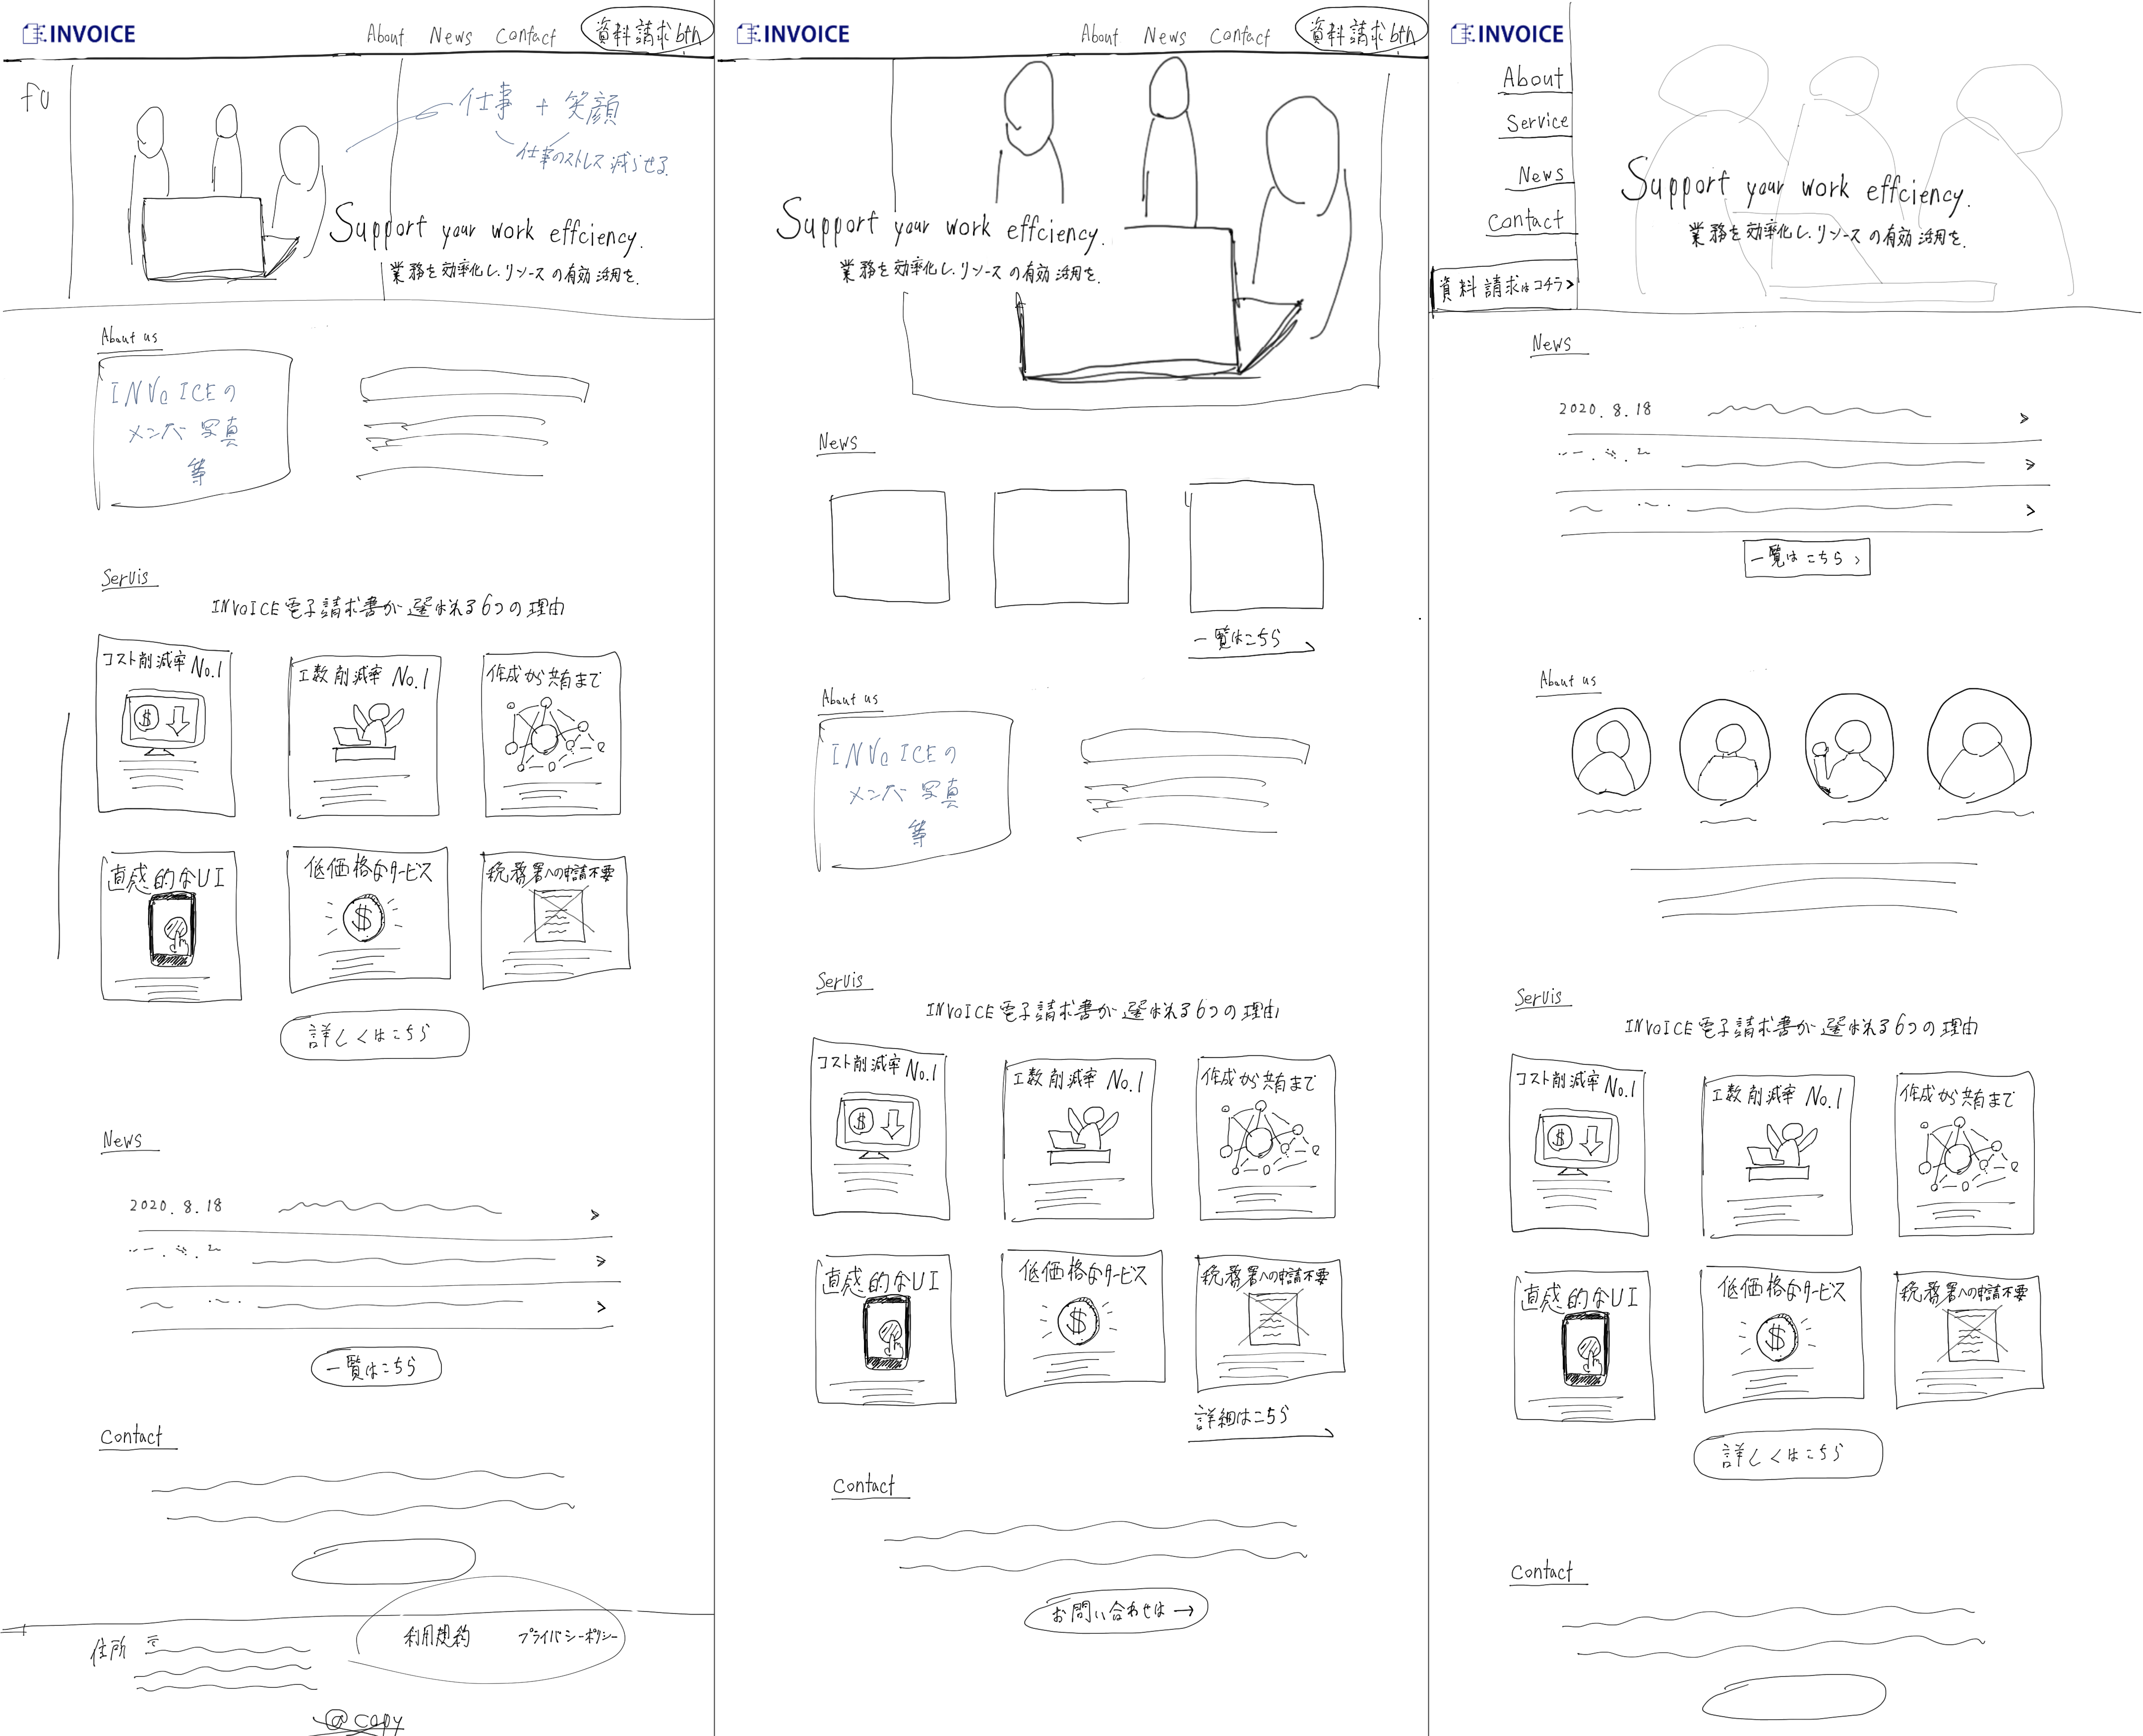 INVOICE
About News Contact 資料請求btn
fv
仕事 + 笑顔
仕事のストレス減らせる
Support your work effciency.
業務を効率化し、リソースの有効活用を。
About us
INVOICEの
メンバー写真
等
Servis
INVOICE電子請求書が選ばれる6つの理由
コスト削減率 No.1
工数削減率 No.1
作成から共有まで
直感的なUI
低価格なサービス
税務署への申請不要
詳しくはこちら
News
2020.8.18
一覧はこちら
Contact
住所 〒
利用規約 プライバシーポリシー
@copy
INVOICE
About News Contact 資料請求btn
Support your work effciency.
業務を効率化し、リソースの有効活用を。
News
一覧はこちら
About us
INVOICEの
メンバー写真
等
Servis
INVOICE電子請求書が選ばれる6つの理由
コスト削減率 No.1
工数削減率 No.1
作成から共有まで
直感的なUI
低価格なサービス
税務署への申請不要
詳細はこちら
Contact
お問い合わせは→
INVOICE
About
Service
News
Contact
資料請求はコチラ>
Support your work effciency.
業務を効率化し、リソースの有効活用を。
News
2020.8.18
一覧はこちら >
About us
Servis
INVOICE電子請求書が選ばれる6つの理由
コスト削減率 No.1
工数削減率 No.1
作成から共有まで
直感的なUI
低価格なサービス
税務署への申請不要
詳しくはこちら
Contact